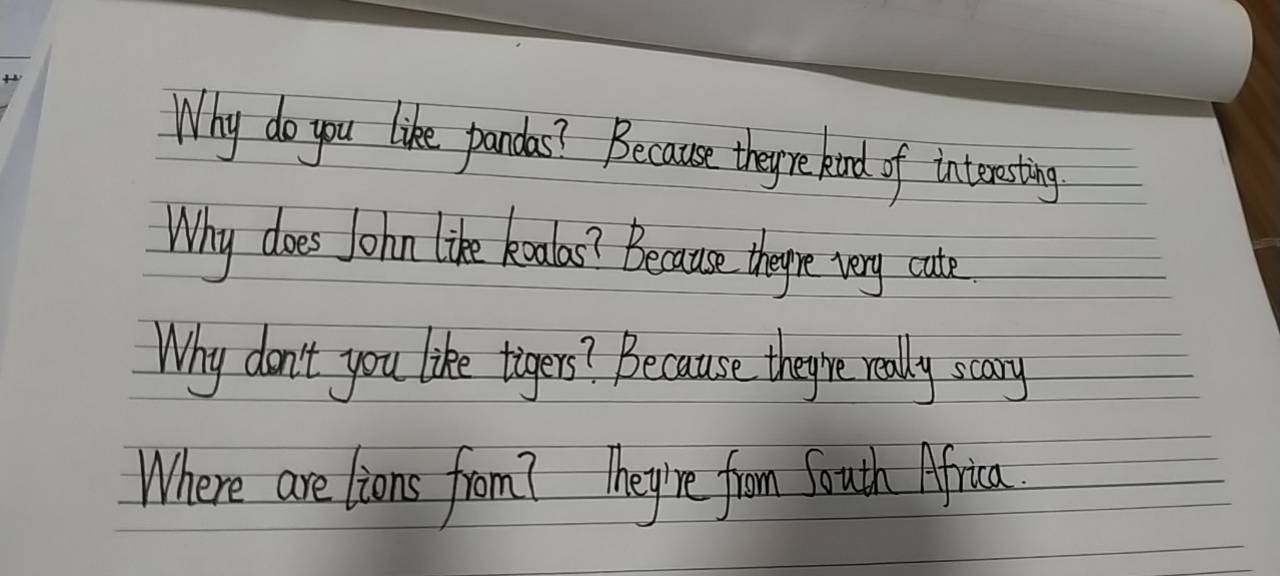 Why do you like pandas? Because they're kind of interesting.
Why does John like koalas? Because they're very cute.
Why don't you like tigers? Because they're really scary
Where are lions from? They're from South Africa.